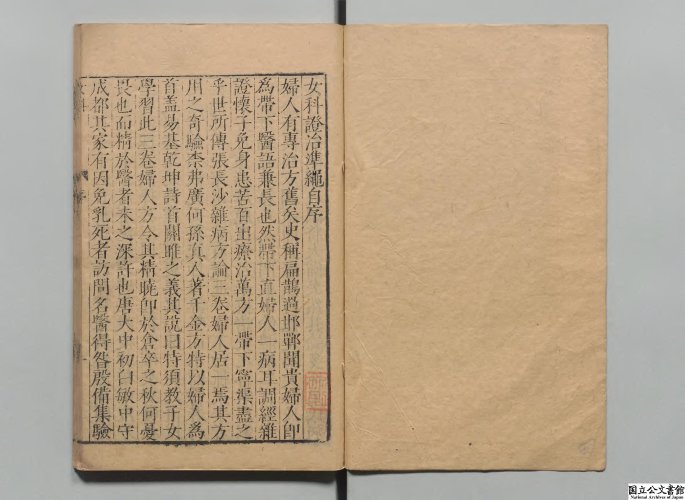 女科證治準繩自序
婦人有專治方舊矣史稱扁鵲過邯鄲聞貴婦人即
為帶下醫語兼長也然帶下直婦人一病耳調經雜
證懷子免身患苦百出療治萬方一帶下寧渠盡之
乎世所傳張長沙雜病方論三卷婦人居一焉其方
用之奇驗柰弗廣何孫真人著千金方特以婦人為
首盖易基乾坤詩首關雎之義其說曰特須教子女
學習此三卷婦人方令其精曉即於倉卒之秋何憂
畏也而精於醫者未之深許也唐大中初白敏中守
成都其家有因免乳死者訪問名醫得昝殷備集驗
国立公文書館
National Archives of Japan